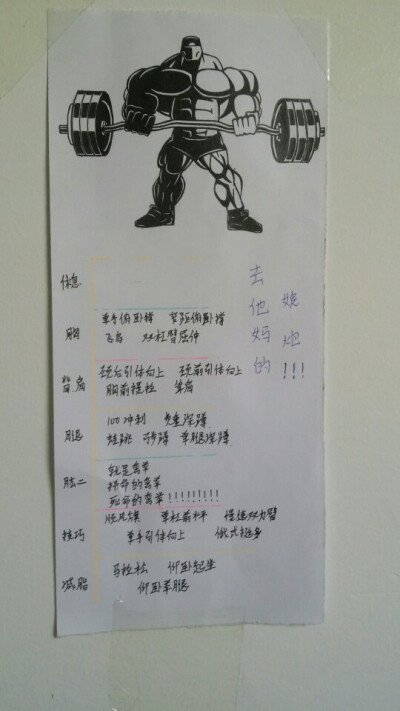 休息
胸
单手俯卧撑 宽距俯卧撑
飞鸟 双杠臂屈伸
背肩
颈后引体向上 颈前引体向上
胸前提拉 耸肩
腿
100冲刺 负重深蹲
蛙跳 弓步蹲 单腿深蹲
肱二
就是弯举
拼命的弯举
死命的弯举!!!!!!!!!
技巧
顺风旗 单杠前水平 慢速双力臂
单手引体向上 俄式挺身
减脂
马拉松 仰卧起坐
仰卧举腿
去他妈的
娘炮!!!